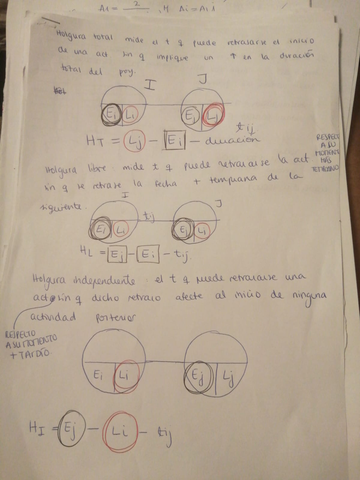 Ai = 2 , y Ai = Ai,1
Holgura total mide el t q puede retrasarse el inicio
de una act sin q implique un ↑ en la duración
total del proy.
I J
Ei Li Ei Li
HT = Lj - Ei - duración tij
RESPECTO
A SU
MOMENTO
MÁS
TEMPRANO
Holgura libre: mide t q puede retrasarse la act
sin q se retrase la fecha + temprana de la
siguiente
I J
Ei Li tij Ej Li
HL = Ej - Ei - tij
Holgura independiente el t q puede retrasarse una
act sin q dicho retraso afecte al inicio de ninguna
actividad posterior
RESPECTO
A SU MOMENTO
+ TARDÍO
Ei Li Ej Lj
HI = Ej - Li - tij